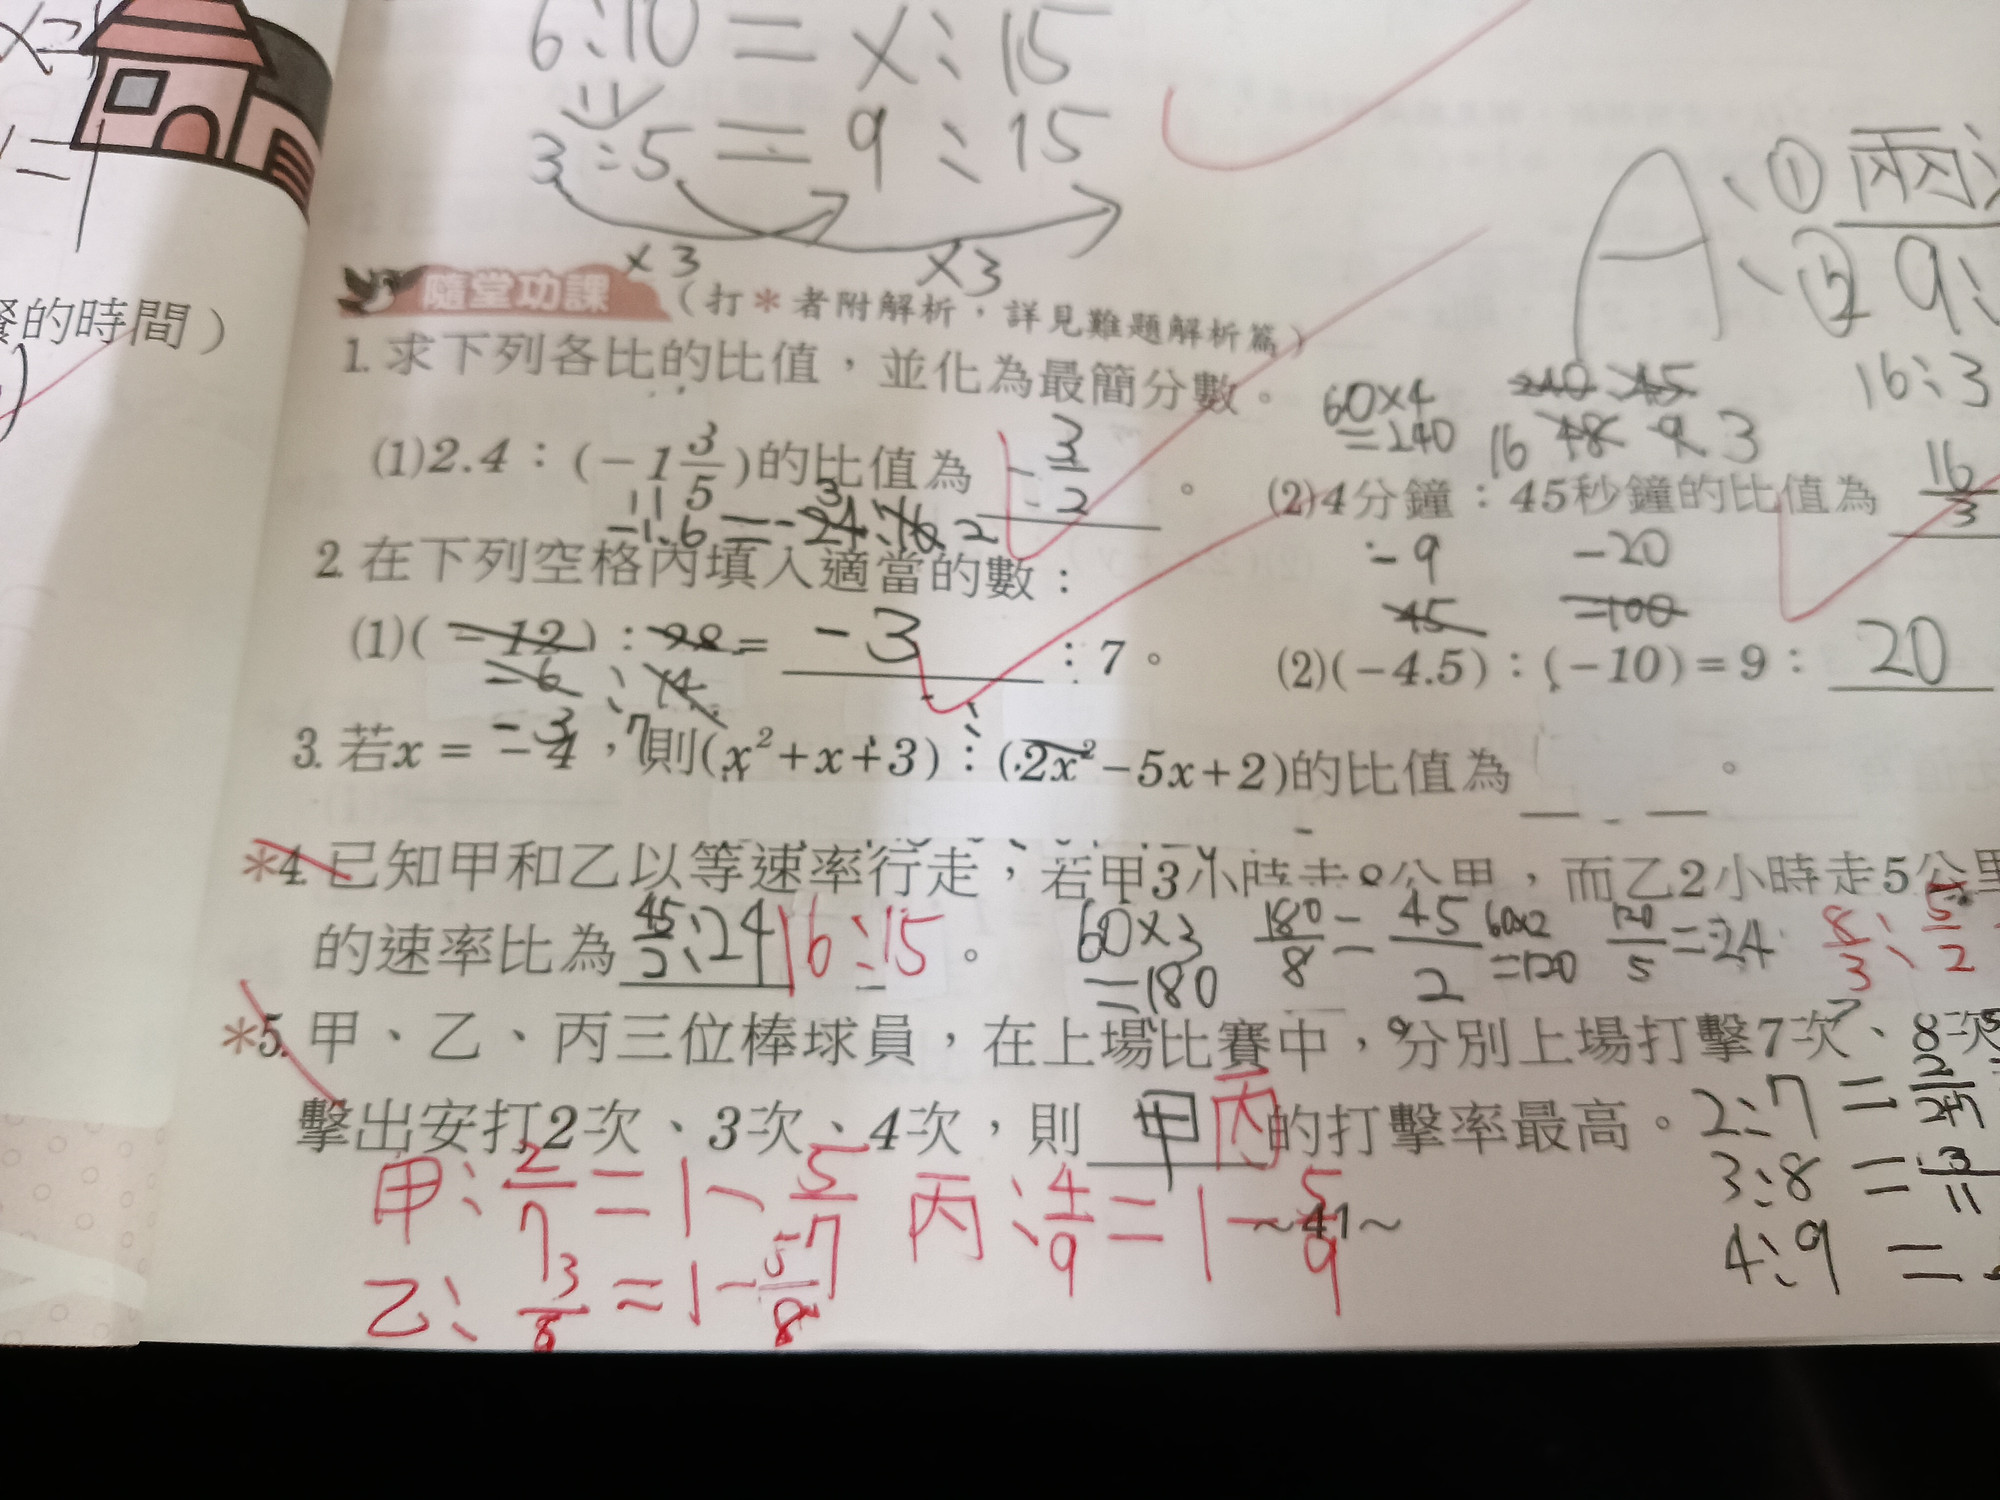 6:10=x:15
3:5=9:15
×3 ×3
餐的時間)
隨堂功課(打*者附解析,詳見難題解析篇)
A、①兩
、② 9:
16:3
1. 求下列各比的比值,並化為最簡分數。
60×4
=240
16 3
(1)2.4:(-1 3/5)的比值為 -3/2 。
-1.6=-24:16 2
3
(2)4分鐘:45秒鐘的比值為 16/3
2. 在下列空格內填入適當的數:
-9 -20
45 -100
(1)(-12):28=-3:7。
(2)(-4.5):(-10)=9:20
-6:14
-3 7
3. 若x=-4,則(x²+x+3):(2x²-5x+2)的比值為 。
*4. 已知甲和乙以等速率行走,若甲3小時走8公里,而乙2小時走5公里
的速率比為 45/2:24 16:15。
60×3
=180
180/8=45/2
60×2
=120
120/5=24
8/3:5/2
*5. 甲、乙、丙三位棒球員,在上場比賽中,分別上場打擊7次、8次
擊出安打2次、3次、4次,則 甲 丙 的打擊率最高。
2:7=2/2+7
3:8=3/11
4:9=
甲:2/7=1-5/7 丙:4/9=1-5/9
乙:3/8=1-5/8
~41~